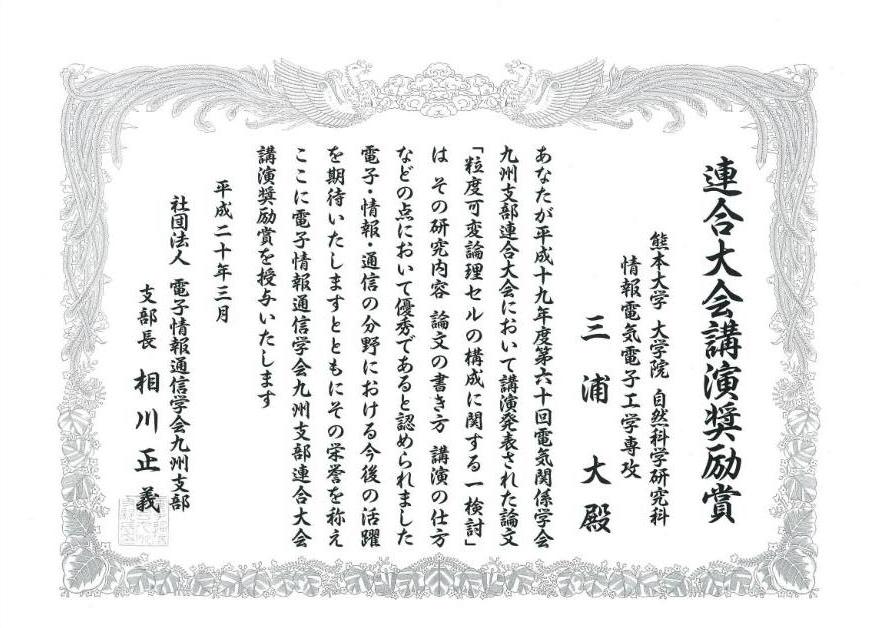 連合大会講演奨励賞
熊本大学 大学院 自然科学研究科
情報電気電子工学専攻
三浦 大 殿
あなたが平成十九年度第六十回電気関係学会
九州支部連合大会において講演発表された論文
「粒度可変論理セルの構成に関する一検討」
は その研究内容 論文の書き方 講演の仕方
などの点において優秀であると認められました
電子・情報・通信の分野における今後の活躍
を期待いたしますとともにその栄誉を称え
ここに電子情報通信学会九州支部連合大会
講演奨励賞を授与いたします
平成二十年三月
社団法人 電子情報通信学会九州支部
支部長 相川正義